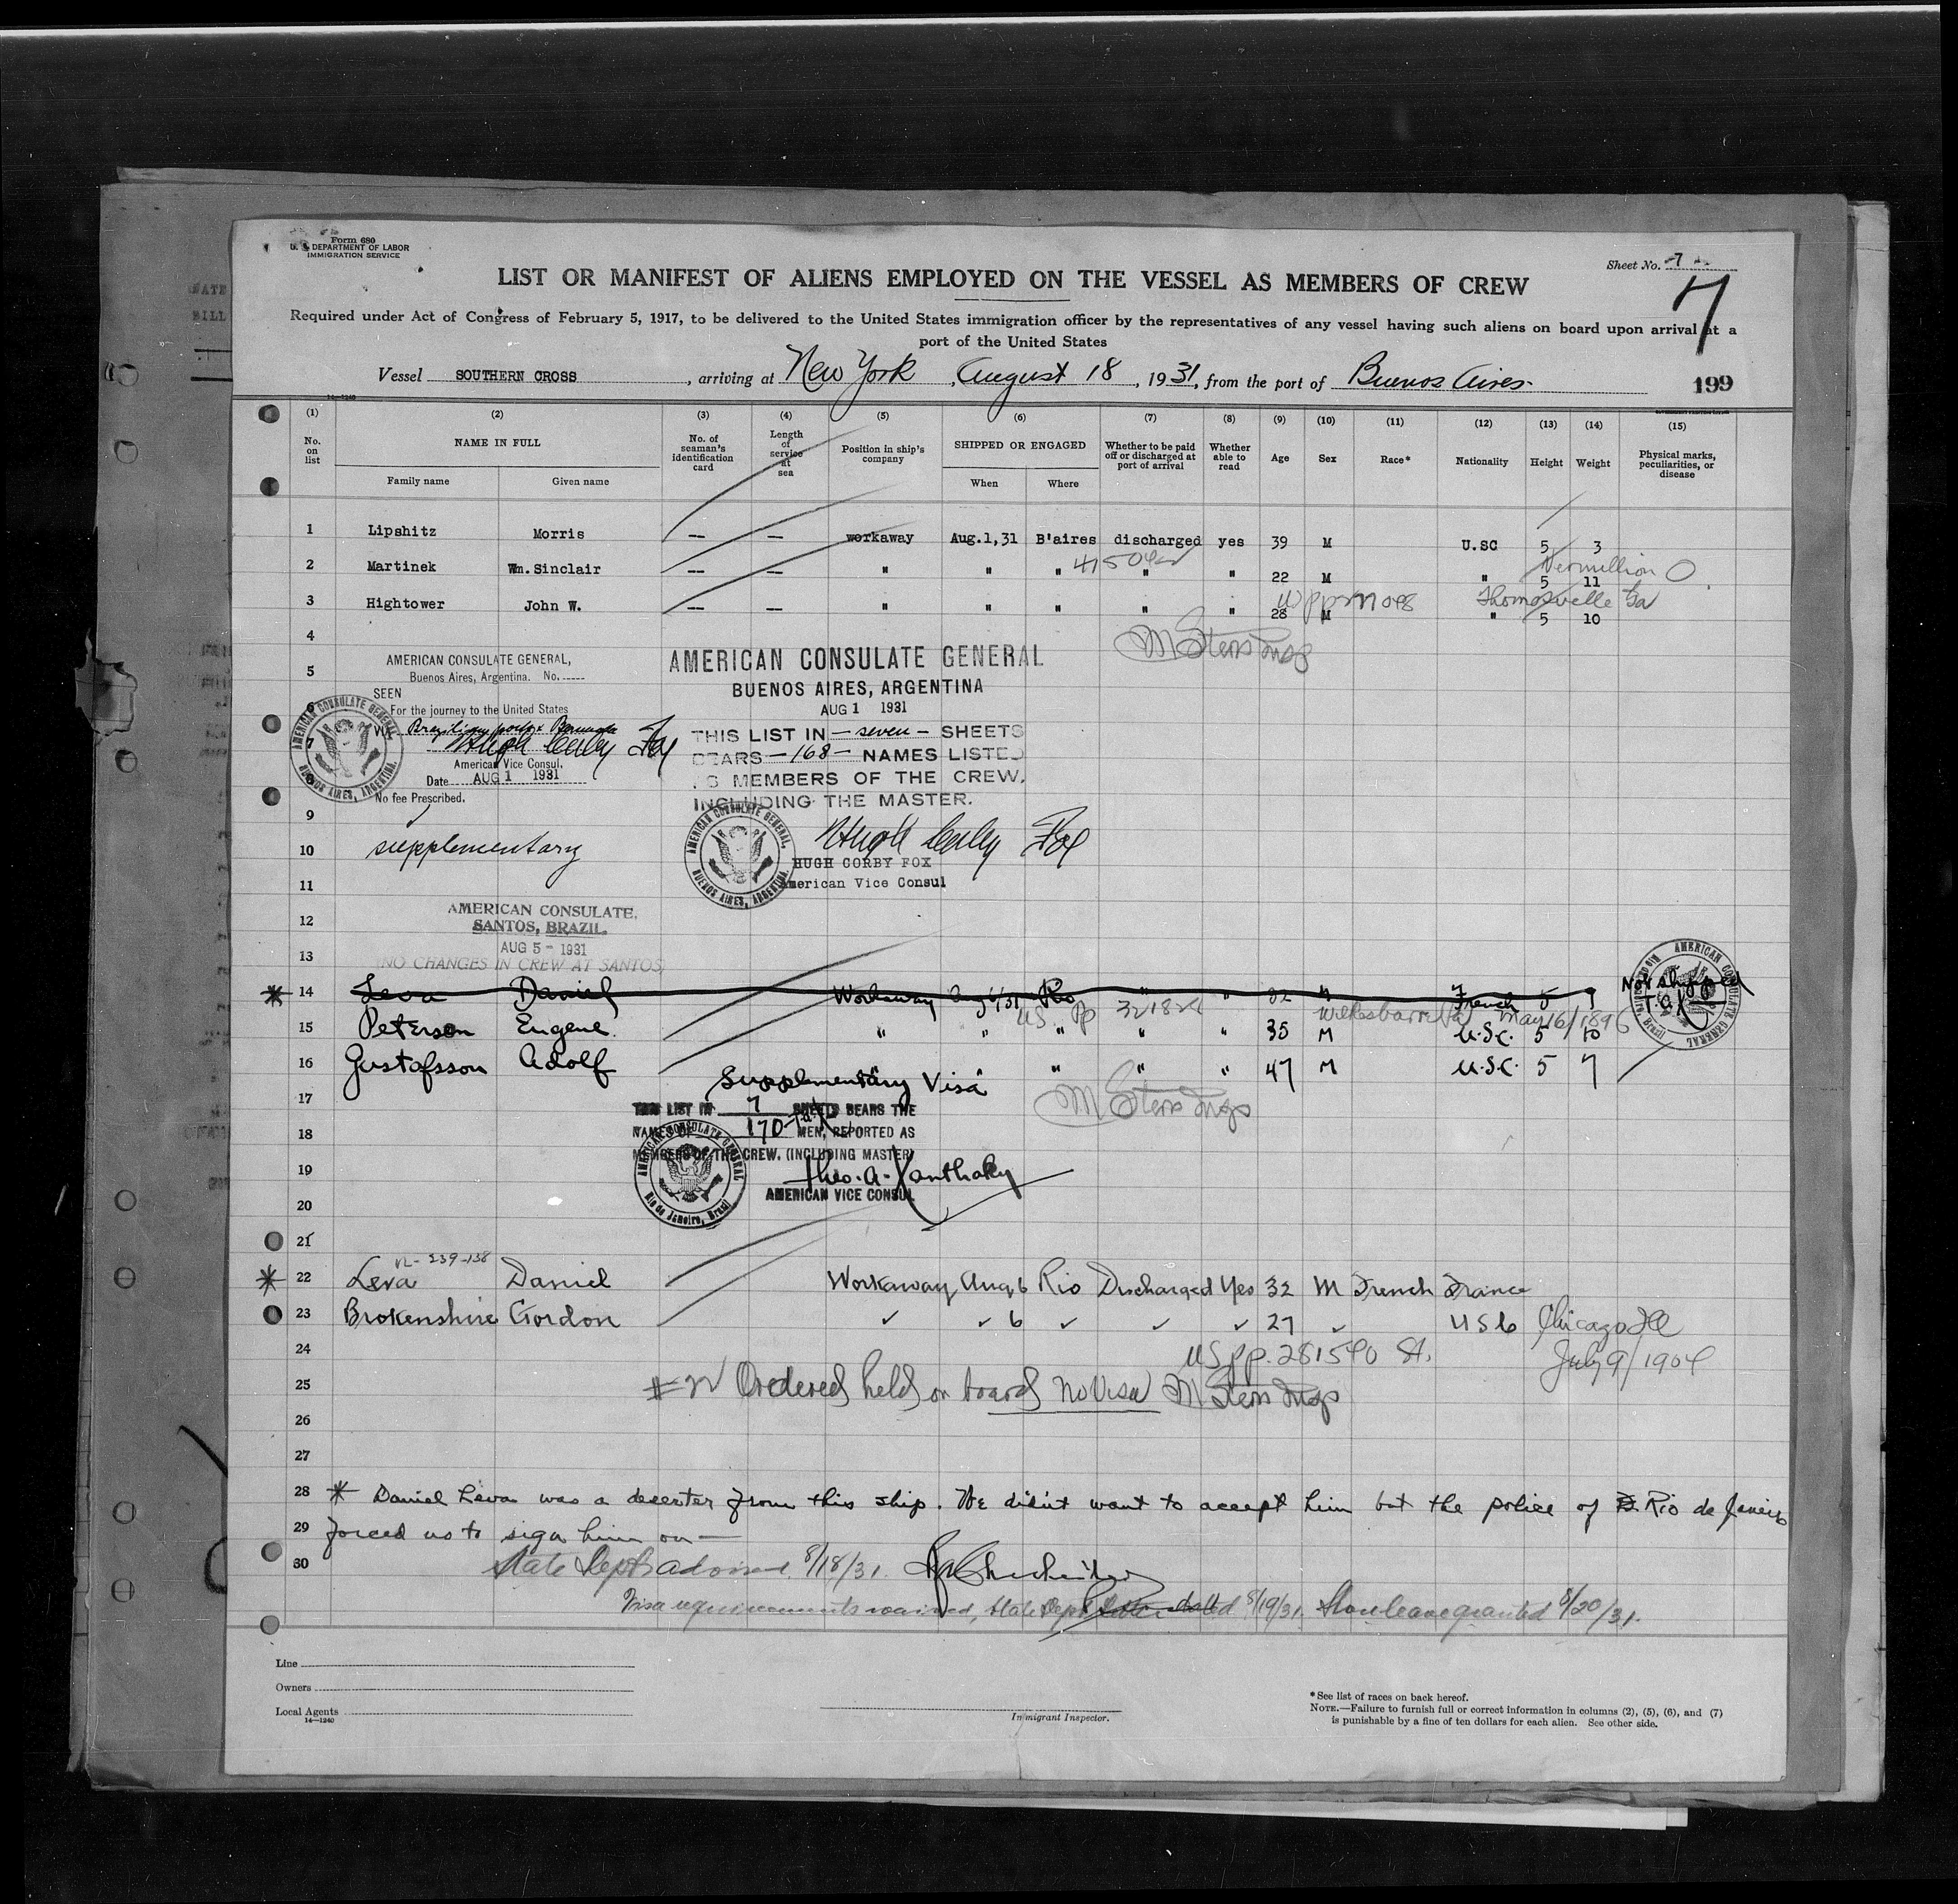 Form 680
U. S. DEPARTMENT OF LABOR
IMMIGRATION SERVICE
Sheet No. 7
7
LIST OR MANIFEST OF ALIENS EMPLOYED ON THE VESSEL AS MEMBERS OF CREW
Required under Act of Congress of February 5, 1917, to be delivered to the United States immigration officer by the representatives of any vessel having such aliens on board upon arrival at a
port of the United States
Vessel SOUTHERN CROSS, arriving at New York, August 18, 1931, from the port of Buenos Aires.
199
14-1240
(1) (2) (3) (4) (5) (6) (7) (8) (9) (10) (11) (12) (13) (14) (15)
No. on list NAME IN FULL No. of seaman's identification card Length of service at sea Position in ship's company SHIPPED OR ENGAGED Whether to be paid off or discharged at port of arrival Whether able to read Age Sex Race* Nationality Height Weight Physical marks, peculiarities, or disease
Family name Given name When Where
1 Lipshitz Morris — — workaway Aug.1,31 B'aires discharged yes 39 M U.SC 5 3
2 Martinek Wm.Sinclair — — " " " " " 22 M " 5 11 Vermillion O
3 Hightower John W. — — " " " " " 28 M " 5 10 Thomasville Ga
4
5
AMERICAN CONSULATE GENERAL,
Buenos Aires, Argentina. No.
SEEN
For the journey to the United States
Via Brazilian ports & Bermuda
Hugh Corby Fox
American Vice Consul.
Date AUG 1 1931
No fee Prescribed.
AMERICAN CONSULATE GENERAL
BUENOS AIRES, ARGENTINA
AUG 1 1931
THIS LIST IN — seven — SHEETS
BEARS — 168 — NAMES LISTED
AS MEMBERS OF THE CREW.
INCLUDING THE MASTER.
AMERICAN CONSULATE GENERAL, BUENOS AIRES, ARGENTINA.
Hugh Corby Fox
HUGH CORBY FOX
American Vice Consul
9
10 supplementary
11
12
AMERICAN CONSULATE,
SANTOS, BRAZIL.
AUG 5 - 1931
13
NO CHANGES IN CREW AT SANTOS
* 14 Leva Daniel Workaway Aug 6/31 Rio " " 32 M French 5 7 Not shipped
T.A.X.
15 Peterson Eugene " " " " " 35 M U.S.C. 5 10
US Pp Wilkesbarre Pa May 16/1896
16 Gustafsson Adolf " " " " " 47 M U.S.C. 5 7
Supplementary Visa
17
THIS LIST IN 7 SHEETS BEARS THE
18
NAMES OF 170 MEN, REPORTED AS
MEMBERS OF THE CREW. (INCLUDING MASTER)
19
Theo. A. Xanthaky
AMERICAN VICE CONSUL
AMERICAN CONSULATE GENERAL Rio de Janeiro, Brazil
20
21
* 22 Leva Daniel Workaway Aug 6 Rio Discharged Yes 32 M French France
23 Brokenshire Gordon ✓ ✓ 6 ✓ ✓ ✓ 27 ✓ USC Chicago Ill
24 US pp. 281540 St. July 9/1904
25 Ordered held on board no visa M Stern Insp
26
27
28 * Daniel Leva was a deserter from this ship. We didn't want to accept him but the police of Rio de Janeiro
29 forced us to sign him on —
30 State Dept advised 8/18/31.
Visa requirements waived, State Dept dated 8/19/31. Shore leave granted 8/20/31.
Line
Owners
Local Agents
14—1240
Immigrant Inspector.
*See list of races on back hereof.
NOTE.—Failure to furnish full or correct information in columns (2), (5), (6), and (7)
is punishable by a fine of ten dollars for each alien. See other side.